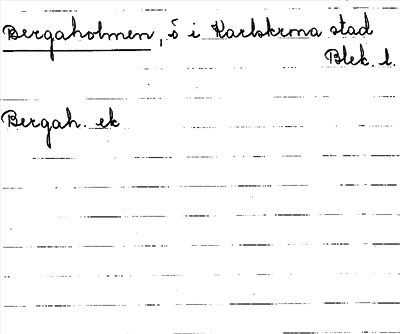 Bergaholmen, ö i Karlskrona stad
Blek. l.
Bergah. ek